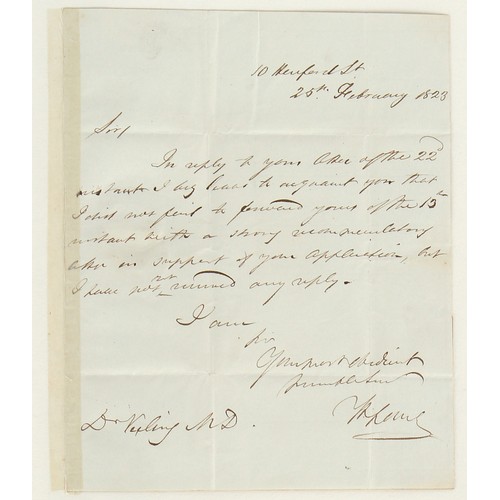 10 Hereford St
25th February 1823
Sir,
In reply to your letter of the 22d
instant I beg leave to acquaint you that
I did not fail to forward yours of the 15th
instant with a strong recommendatory
letter in support of your application, but
I have not yet received any reply.
I am
Sir
Your most obedient
humble Servt
H Lowe
Dr Verling M.D.